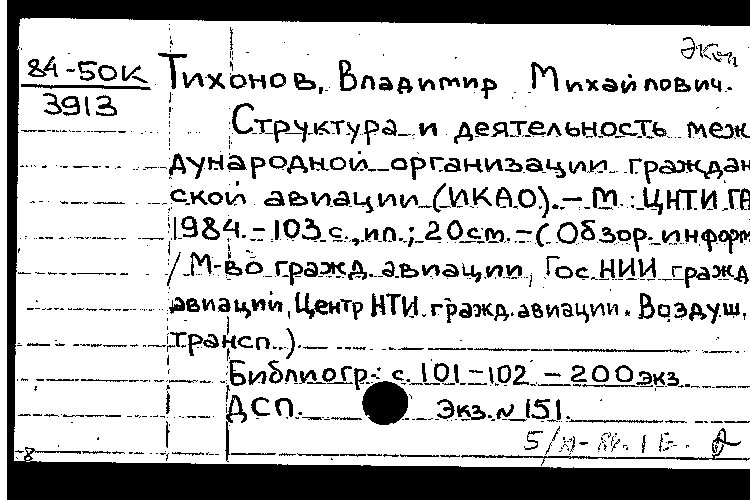 Экз.
84-50К Тихонов, Владимир Михайлович.
3913
Структура и деятельность меж
дународной организации граждан
ской авиации (ИКАО). – М.: ЦНТИ ГА
1984. – 103 с., ил.; 20 см. – (Обзор. информ
/ М-во гражд. авиации, Гос НИИ гражд
авиации, Центр НТИ гражд. авиации. Воздуш.
трансп.).
Библиогр.: с. 101-102 – 200 экз.
ДСП. Экз. № 151.
8